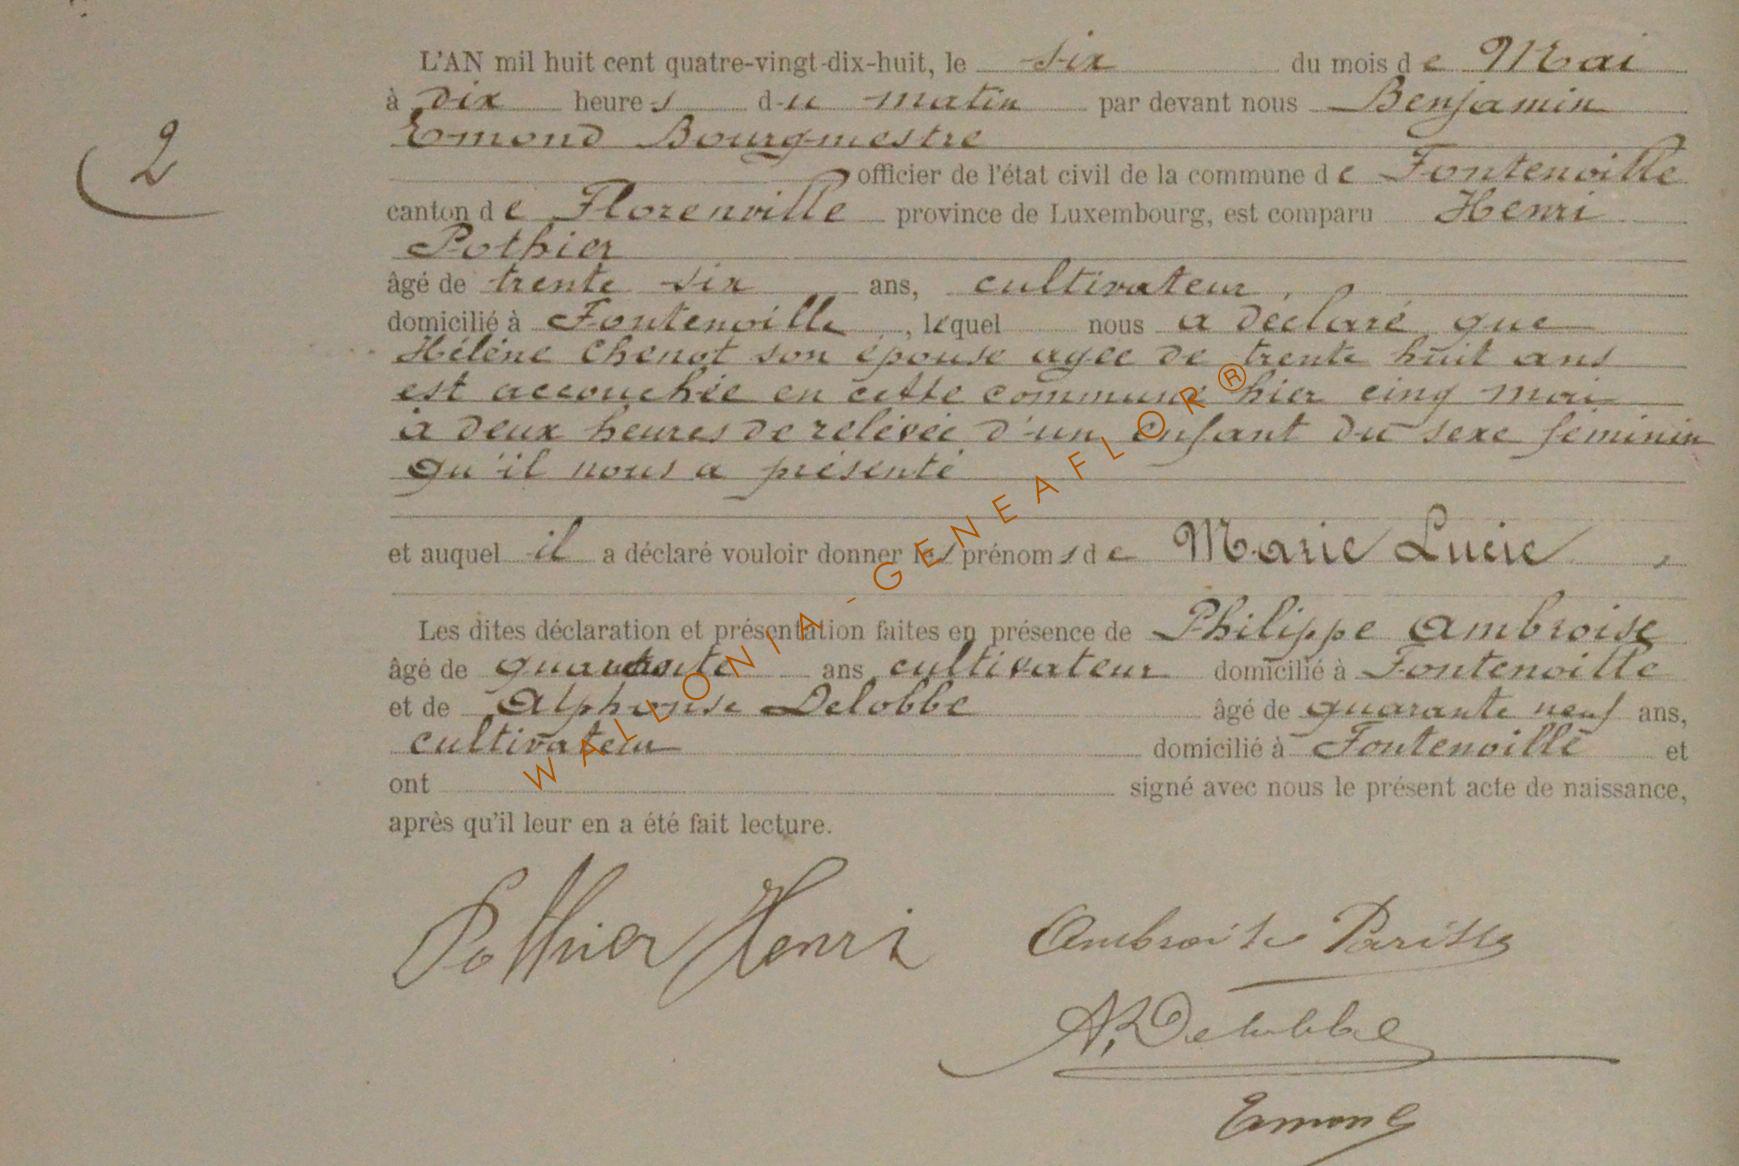 L'AN mil huit cent quatre-vingt-dix-huit, le six du mois de Mai
à dix heures du matin par devant nous Benjamin
Emond Bourgmestre
2
officier de l'état civil de la commune de Fontenoille
canton de Florenville province de Luxembourg, est comparu Henri
Pothier
âgé de trente six ans, cultivateur,
domicilié à Fontenoille, lequel nous a déclaré que
Hélène Chenot son épouse agée de trente huit ans
est accouchée en cette commune hier cinq mai
à deux heures de relevée d'un enfant du sexe féminin
qu'il nous a présenté
et auquel il a déclaré vouloir donner les prénoms de Marie Lucie,
Les dites déclaration et présentation faites en présence de Philippe Ambroise
âgé de quarante ans cultivateur domicilié à Fontenoille
et de Alphonse Delobbe âgé de quarante neuf ans,
cultivateur domicilié à Fontenoille et
ont signé avec nous le présent acte de naissance,
après qu'il leur en a été fait lecture.
WALLONIA-GENEAFLOR®
Pothier Henri
Ambroise
A. Delobbe
Emond